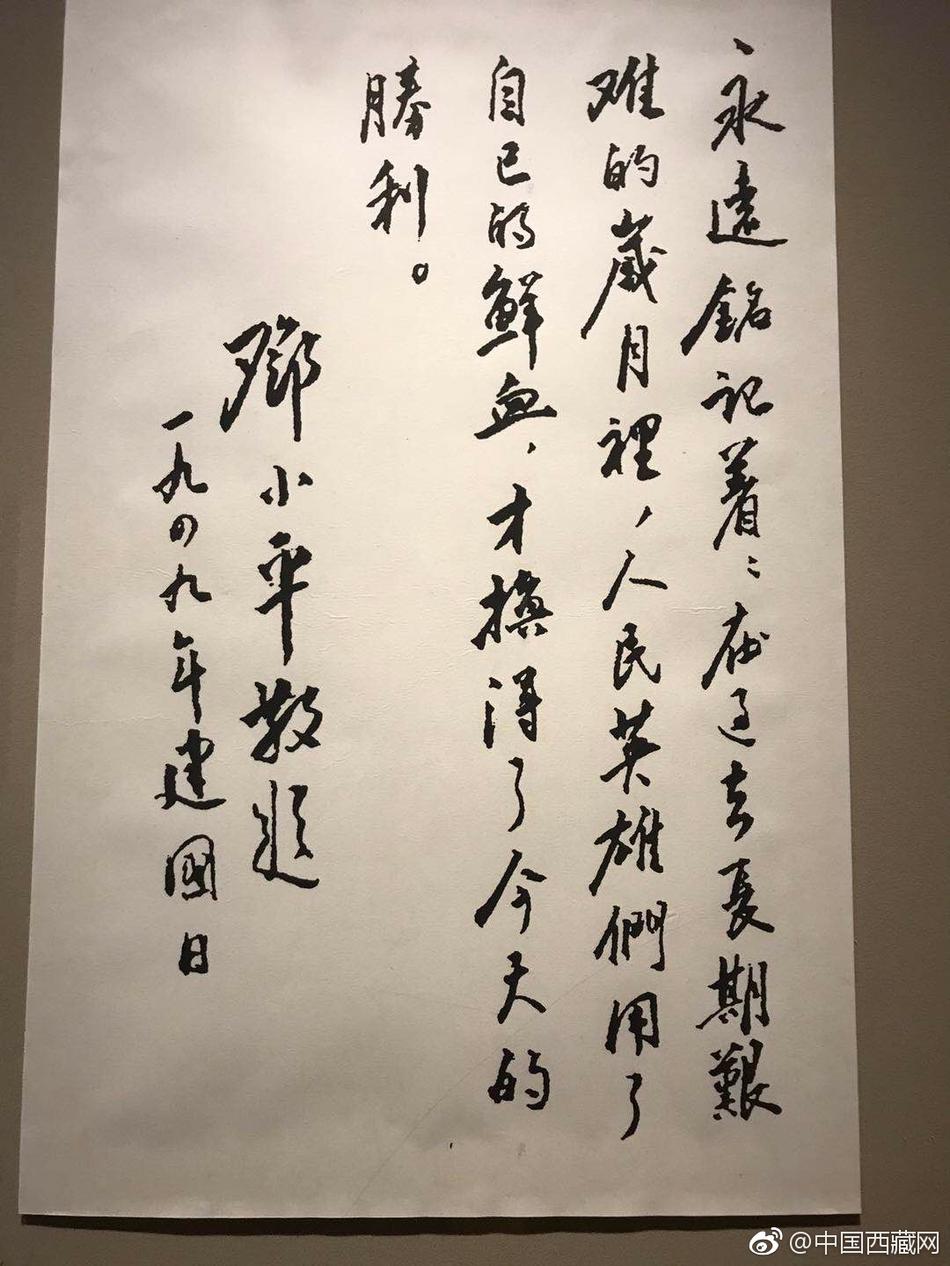 永遠銘記着：在过去長期艱
难的歲月裡，人民英雄們用了
自己的鮮血，才換得了今天的
勝利。
鄧小平敬题
一九四九年建國日
@中国西藏网